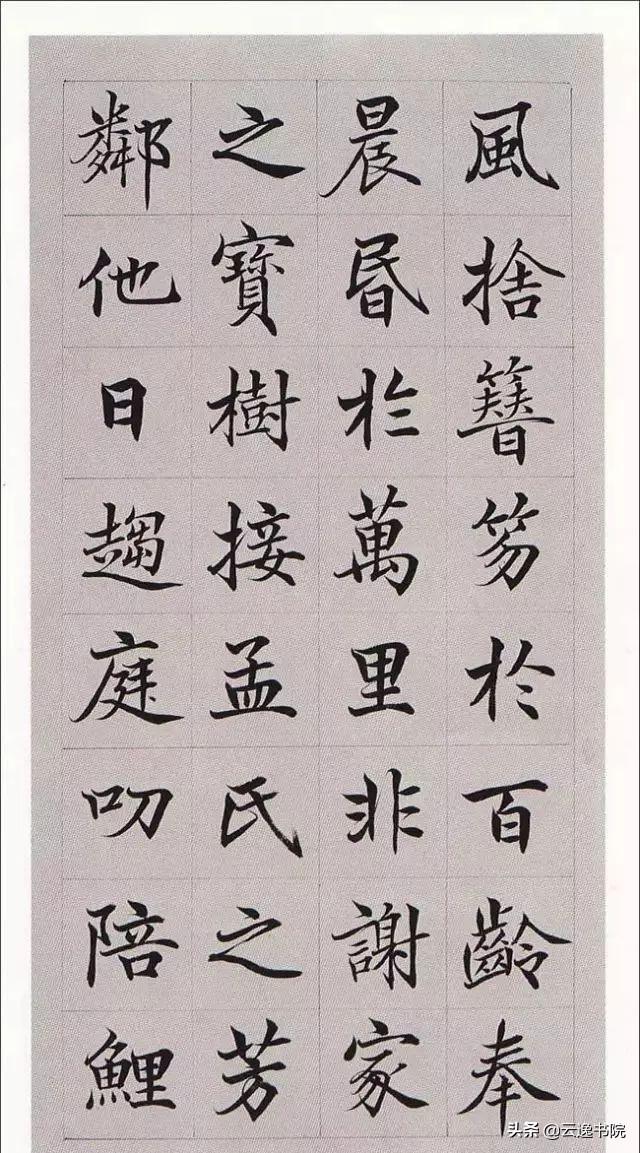 風捨簪笏於百齡奉
晨昏於萬里非謝家
之寶樹接孟氏之芳
鄰他日趨庭叨陪鯉
头条@云逸书院